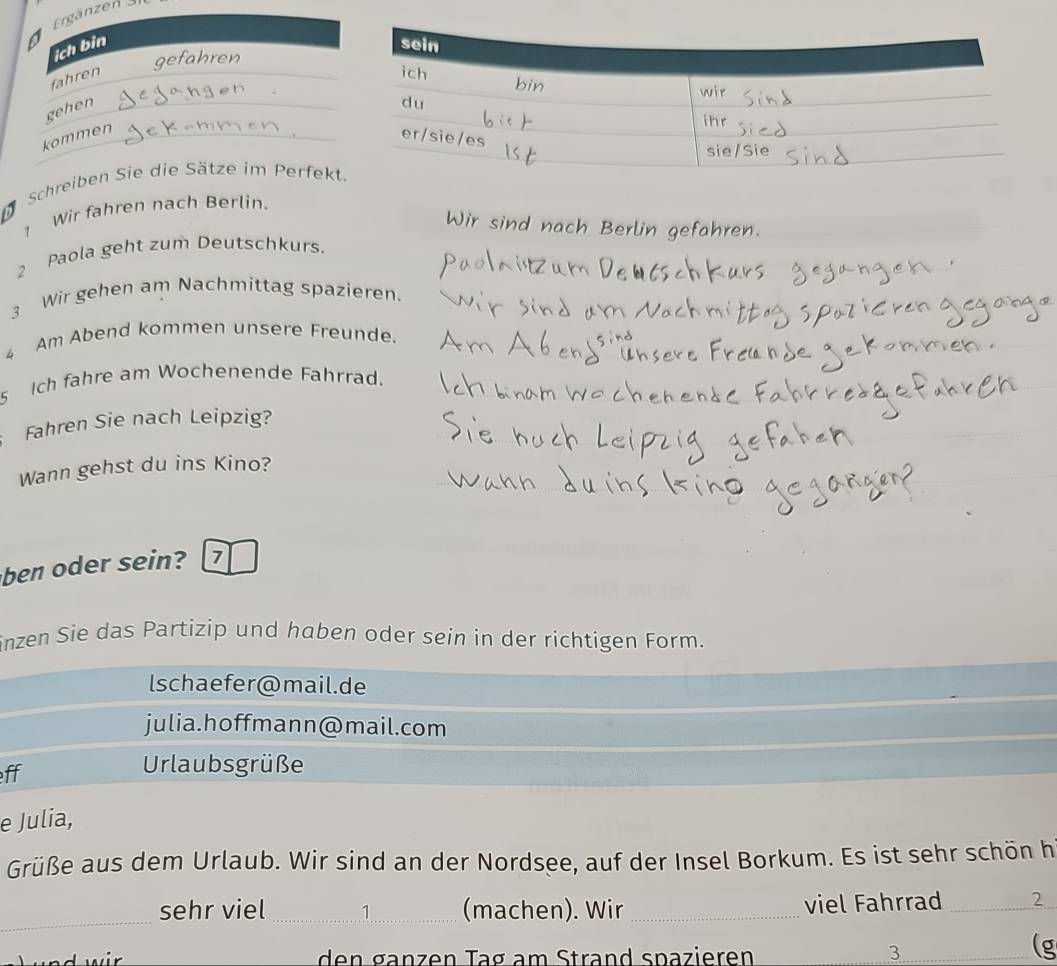 Ergänzen
ich bin
fahren gefahren
gehen gegangen .
kommen gekommen .
sein
ich bin wir sind
du bist ihr sied
er/sie/es ist sie/Sie sind
Schreiben Sie die Sätze im Perfekt.
1 Wir fahren nach Berlin. Wir sind nach Berlin gefahren.
2 Paola geht zum Deutschkurs. Paola ist zum Deutschkurs gegangen .
3 Wir gehen am Nachmittag spazieren. Wir sind am Nachmittag spazieren gegange
4 Am Abend kommen unsere Freunde. Am Abend sind unsere Freunde gekommen.
5 Ich fahre am Wochenende Fahrrad. Ich bin am Wochenende Fahrrad gefahren
Fahren Sie nach Leipzig? Sie nach Leipzig gefahen
Wann gehst du ins Kino? Wann du ins kino gegangen?
ben oder sein? 7
nzen Sie das Partizip und haben oder sein in der richtigen Form.
lschaefer@mail.de
julia.hoffmann@mail.com
eff Urlaubsgrüße
e Julia,
Grüße aus dem Urlaub. Wir sind an der Nordsee, auf der Insel Borkum. Es ist sehr schön h
sehr viel 1 (machen). Wir viel Fahrrad 2
und wir den ganzen Tag am Strand spazieren 3 (g